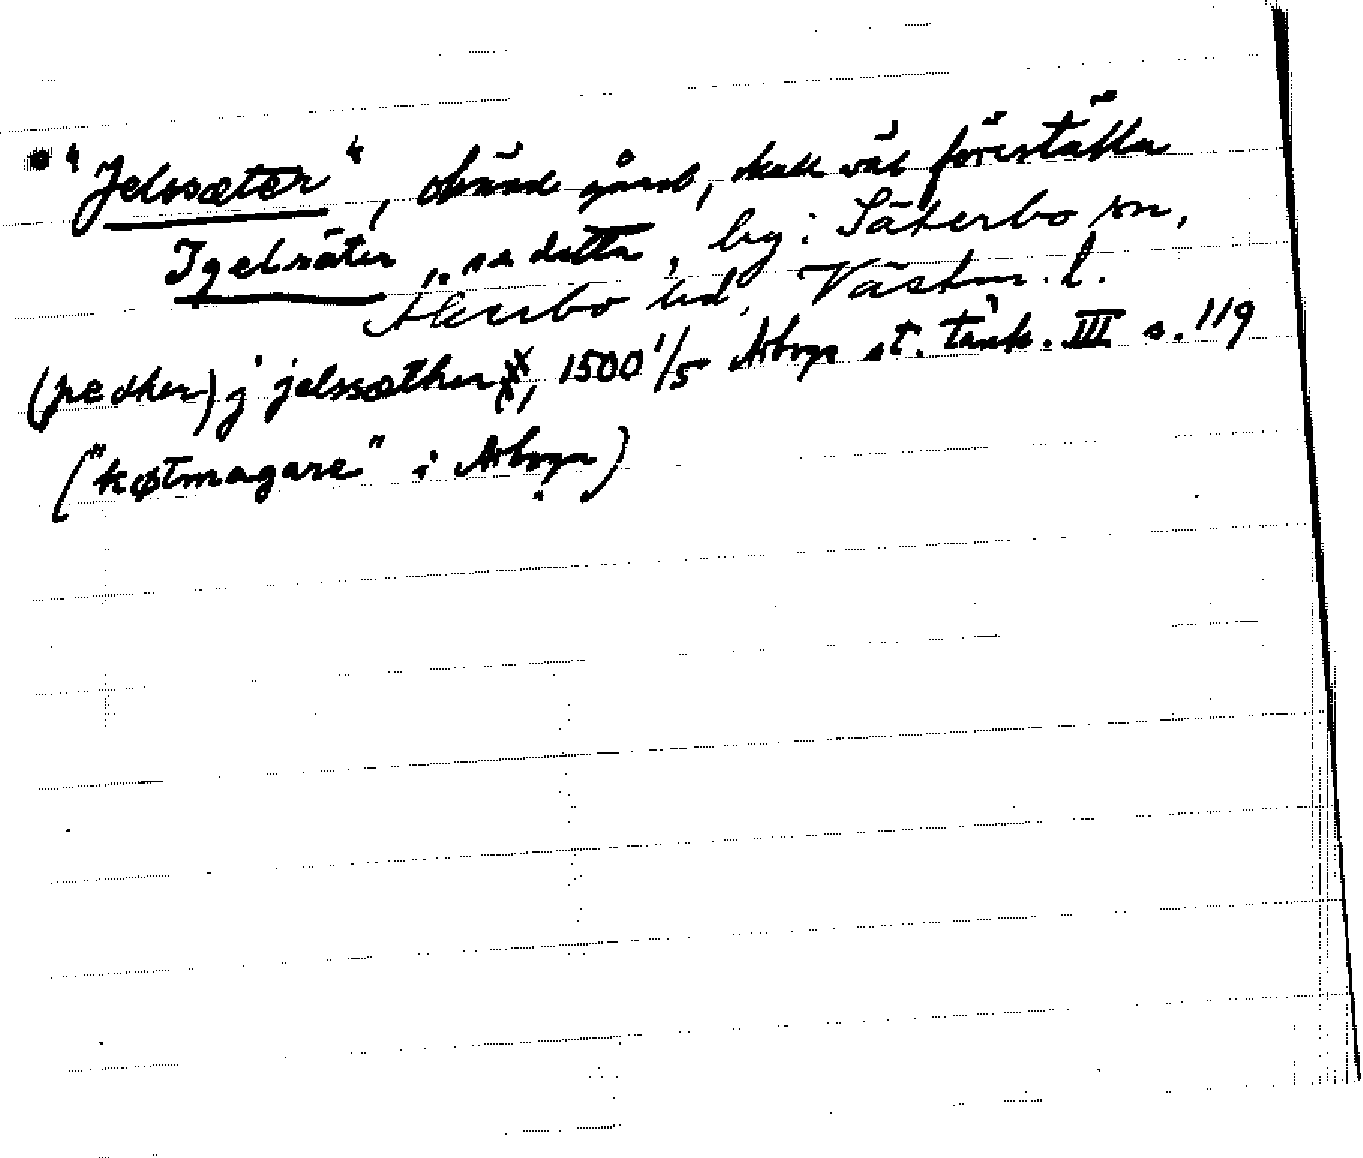 "Jelssæter", okänd gård, skall väl föreställa
Igelsäter, se detta, by i Säterbo sn,
Åkerbo hd, Västm. l.
(pedher) j jelssæther, 1500 1/5 Arboga st. tänk. III s. 119
("køtmagare" i Arboga)